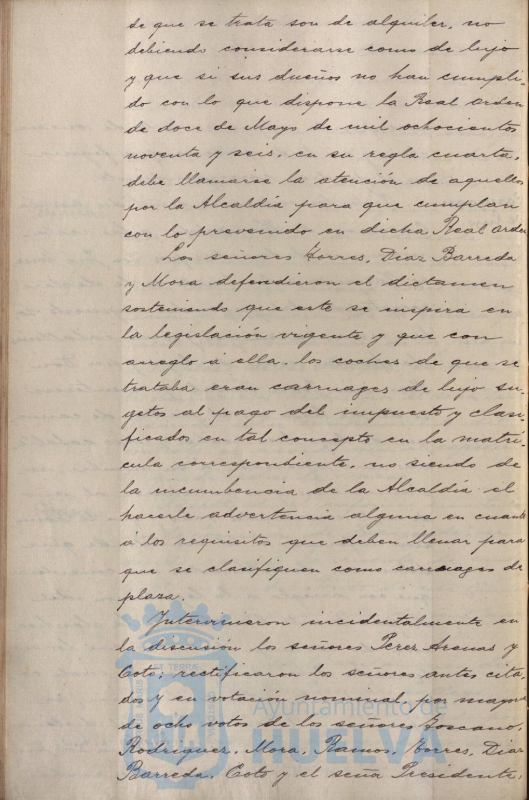 de que se trata son de alquiler, no
debiendo considerarse como de lujo
y que si sus dueños no han cumpli-
do con lo que dispone la Real orden
de doce de Mayo de mil ochocientos
noventa y seis, en su regla cuarta,
debe llamarse la atención de aquellos
por la Alcaldía para que cumplan
con lo prevenido en dicha Real orden
Los señores Torres, Diaz Barreda
y Mora defendieron el dictamen
sosteniendo que este se inspira en
la legislación vigente y que con
arreglo á ella, los coches de que se
trataba eran carruages de lujo su-
getos al pago del impuesto y clasi-
ficados en tal concepto en la matri-
cula correspondiente, no siendo de
la incumbencia de la Alcaldía el
hacerle advertencia alguna en cuanto
á los requisitos que deben llenar para
que se clasifiquen como carruages de
plaza.
Intervinieron incidentalmente en
la discusión los señores Perez Arenas y
Coto; rectificaron los señores antes cita-
dos y en votación nominal, por mayoria
de ocho votos de los señores Toscano,
Rodriguez, Mora, Ramos, Torres, Diaz
Barreda, Coto y el señor Presidente,
Ayuntamiento de
HUELVA